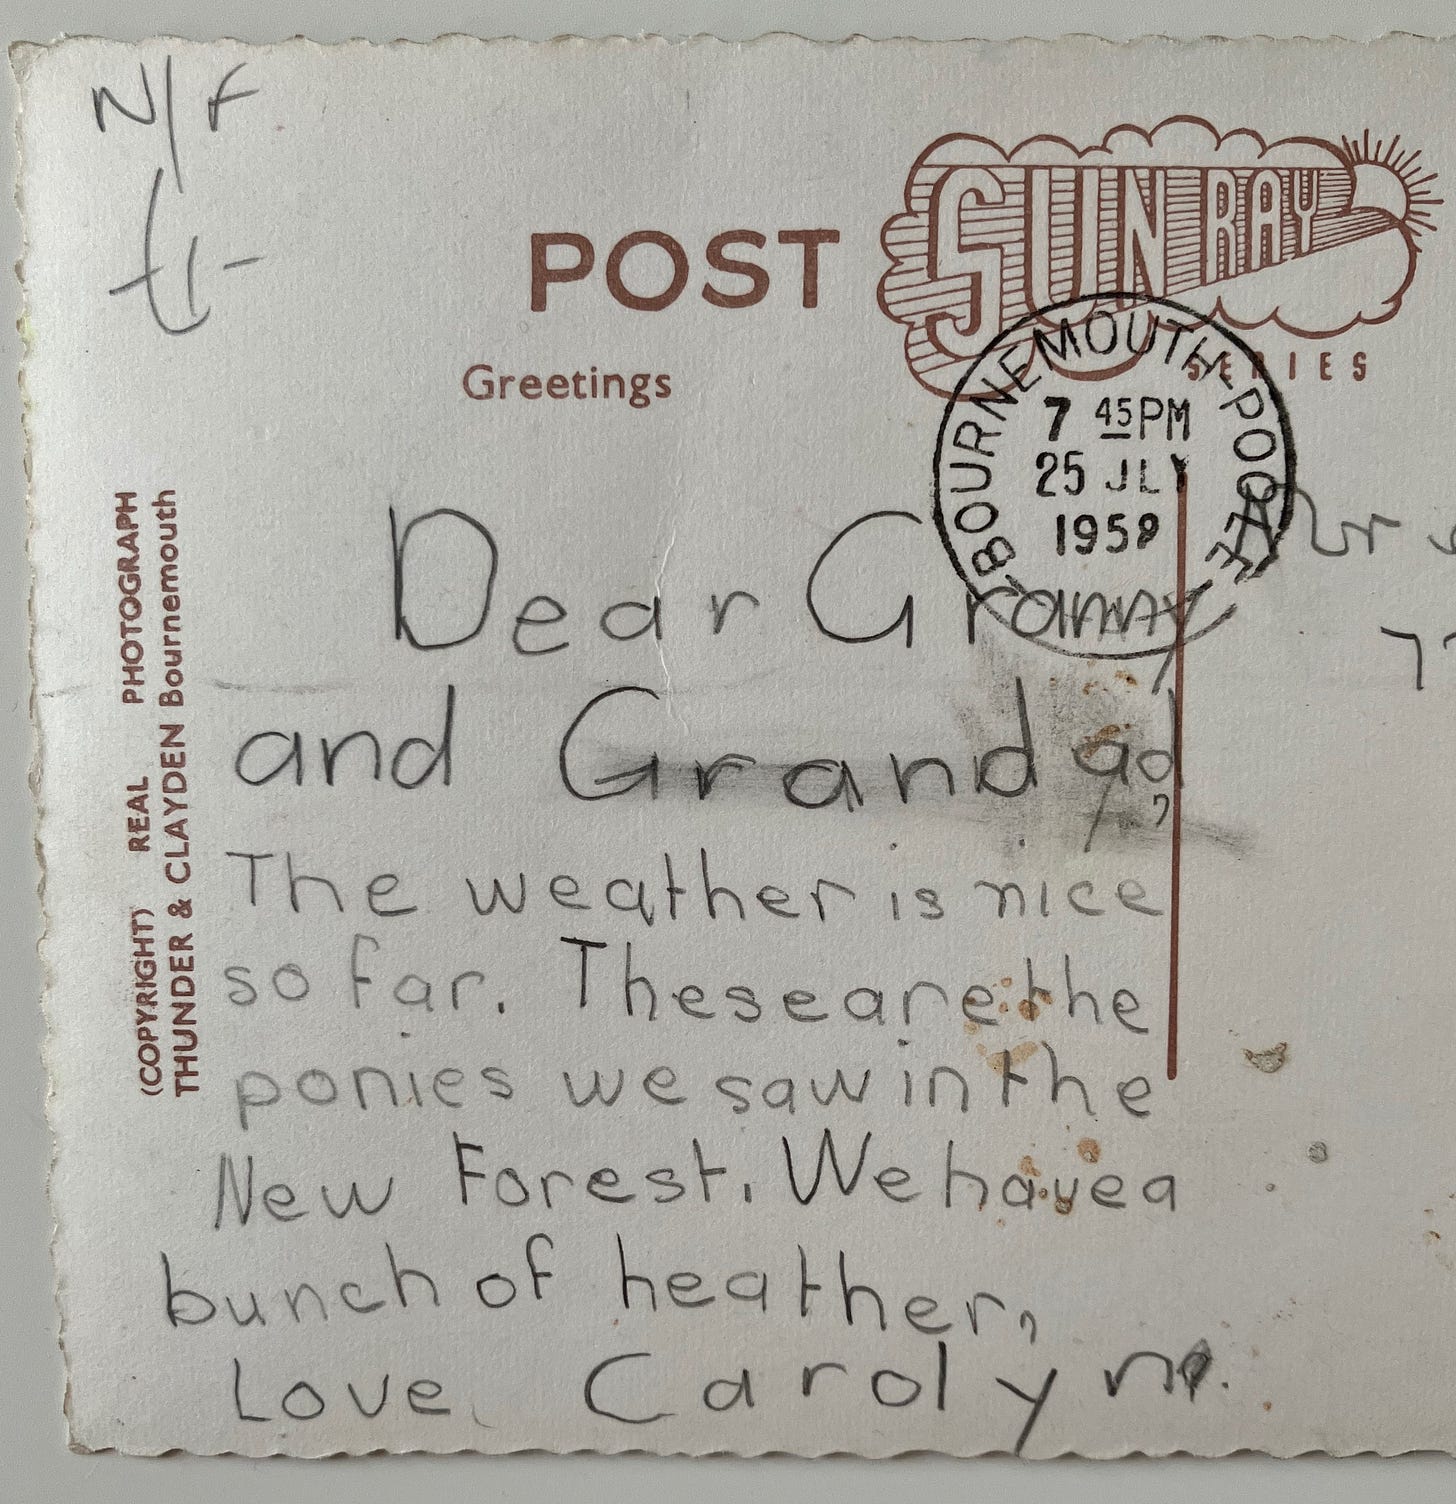 N/F
POST
SUN RAY
SERIES
Greetings
BOURNEMOUTH-POOLE
7 45PM
25 JLY
1958
(COPYRIGHT) REAL PHOTOGRAPH
THUNDER & CLAYDEN Bournemouth
Dear Granny
and Grandad,
The weather is nice
so far. These are the
ponies we saw in the
New Forest. We have a
bunch of heather,
Love Carolyn.